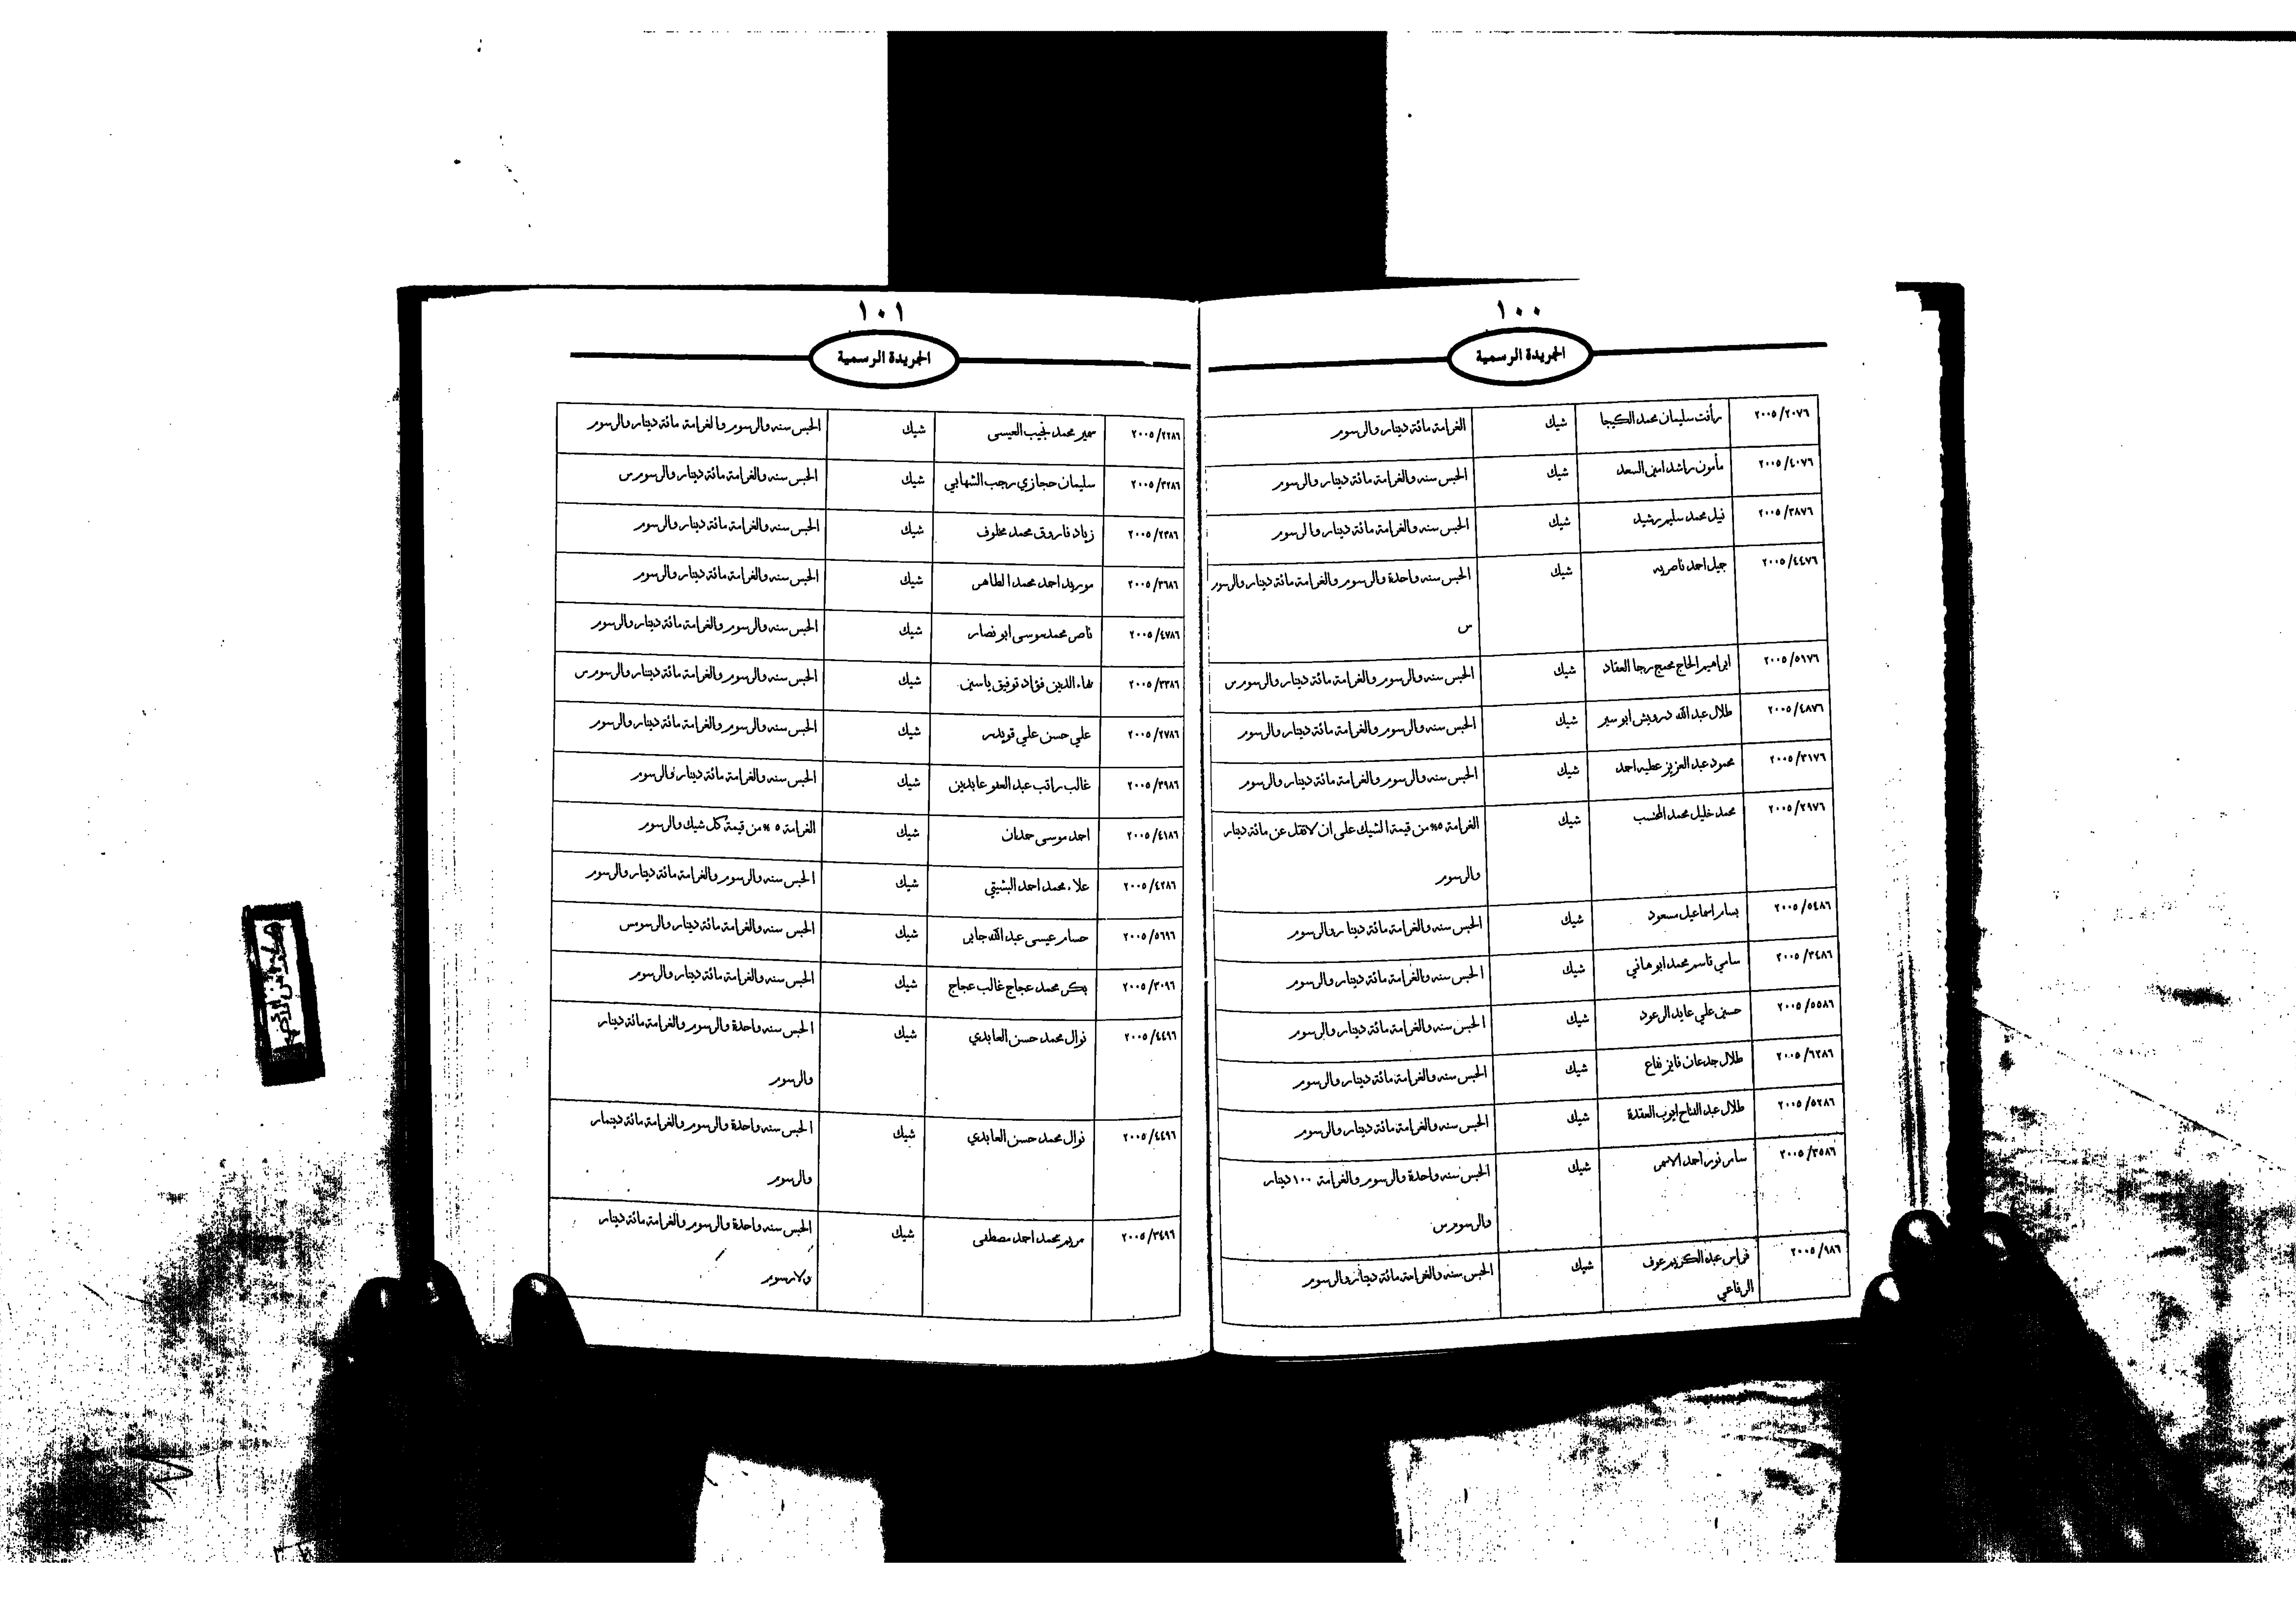 ١٠٠
الجريدة الرسمية
٢٠٠٥/٢٠٧٦ رأفت سليمان محمد الكيجا شيك الغرامة مائة دينار والرسوم
٢٠٠٥/٤٠٧٦ مأمون راشد امين السعد شيك الحبس سنه والغرامة مائة دينار والرسوم
٢٠٠٥/٣٨٧٦ نيل محمد سليم رشيد شيك الحبس سنه والغرامة مائة دينار والرسوم
٢٠٠٥/٤٤٧٦ جميل احمد ناصريه شيك الحبس سنه واحدة والرسوم والغرامة مائة دينار والرسوم
س
٢٠٠٥/٥١٧٦ ابراهيم الحاج محمج رجا العقاد شيك الحبس سنه والرسوم والغرامة مائة دينار والرسوم س
٢٠٠٥/٤٨٧٦ طلال عبد الله درويش ابو سير شيك الحبس سنه والرسوم والغرامة مائة دينار والرسوم
٢٠٠٥/٣١٧٦ محمود عبد العزيز عطيه احمد شيك الحبس سنه والرسوم والغرامة مائة دينار والرسوم
٢٠٠٥/٢٩٧٦ محمد خليل محمد المحتسب شيك الغرامة ٥% من قيمة الشيك على ان لا تقل عن مائة دينار
والرسوم
٢٠٠٥/٥٤٨٦ بسام اسماعيل مسعود شيك الحبس سنه والغرامة مائة دينار والرسوم
٢٠٠٥/٣٤٨٦ سامي قاسم محمد ابو هاني شيك الحبس سنه والغرامة مائة دينار والرسوم
٢٠٠٥/٥٥٨٦ حسين علي عايد الرعود شيك الحبس سنه والغرامة مائة دينار والرسوم
٢٠٠٥/٦٢٨٦ طلال جدعان فايز نفاع شيك الحبس سنه والغرامة مائة دينار والرسوم
٢٠٠٥/٥٢٨٦ طلال عبد الفتاح ايوب العقدة شيك الحبس سنه والغرامة مائة دينار والرسوم
٢٠٠٥/٣٥٨٦ سامر نور احمد الاسمر شيك الحبس سنه واحدة والرسوم والغرامة ١٠٠ دينار
والرسوم س
٢٠٠٥/٩٨٦ فراس عبد الكريم عوف شيك الحبس سنه والغرامة مائة دينار والرسوم
الرفاعي
١٠١
الجريدة الرسمية
٢٠٠٥/٢٢٨٦ سمير محمد نجيب العيسى شيك الحبس سنه والرسوم والغرامة مائة دينار والرسوم
٢٠٠٥/٣٢٨٦ سليمان حجازي رجب الشهابي شيك الحبس سنه والغرامة مائة دينار والرسوم س
٢٠٠٥/٢٣٨٦ زياد فاروق محمد مخلوف شيك الحبس سنه والغرامة مائة دينار والرسوم
٢٠٠٥/٣٦٨٦ موريد احمد محمد الطاهر شيك الحبس سنه والغرامة مائة دينار والرسوم
٢٠٠٥/٤٧٨٦ ناصر محمد موسى ابو نصار شيك الحبس سنه والرسوم والغرامة مائة دينار والرسوم
٢٠٠٥/٣٣٨٦ بهاء الدين فؤاد توفيق ياسين شيك الحبس سنه والرسوم والغرامة مائة دينار والرسوم س
٢٠٠٥/٢٧٨٦ علي حسن علي قويدر شيك الحبس سنه والرسوم والغرامة مائة دينار والرسوم
٢٠٠٥/٣٩٨٦ غالب راتب عبد العفو عابدين شيك الحبس سنه والغرامة مائة دينار والرسوم
٢٠٠٥/٤١٨٦ احمد موسى حمدان شيك الغرامة ٥ % من قيمة كل شيك والرسوم
٢٠٠٥/٤٢٨٦ علاء محمد احمد البشيتي شيك الحبس سنه والرسوم والغرامة مائة دينار والرسوم
٢٠٠٥/٥٦٩٦ حسام عيسى عبد الله جابر شيك الحبس سنه والغرامة مائة دينار والرسومس
٢٠٠٥/٣٠٩٦ بكر محمد عجاج غالب عجاج شيك الحبس سنه والغرامة مائة دينار والرسوم
٢٠٠٥/٤٤٩٦ نوال محمد حسن العابدي شيك الحبس سنه واحدة والرسوم والغرامة مائة دينار
والرسوم
٢٠٠٥/٤٤٩٦ نوال محمد حسن العابدي شيك الحبس سنه واحدة والرسوم والغرامة مائة دينمار
والرسوم
٢٠٠٥/٣٤٩٦ مريم محمد احمد مصطفى شيك الحبس سنه واحدة والرسوم والغرامة مائة دينار
ولارسوم